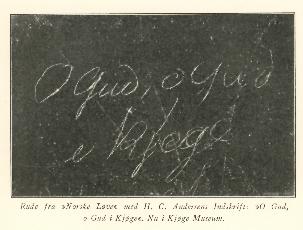 O Gud, o Gud
i Kjøge
Rude fra »Norske Løve« med H. C. Andersens Indskrift: »O Gud,
o Gud i Kjøge«. Nu i Kjøge Museum.